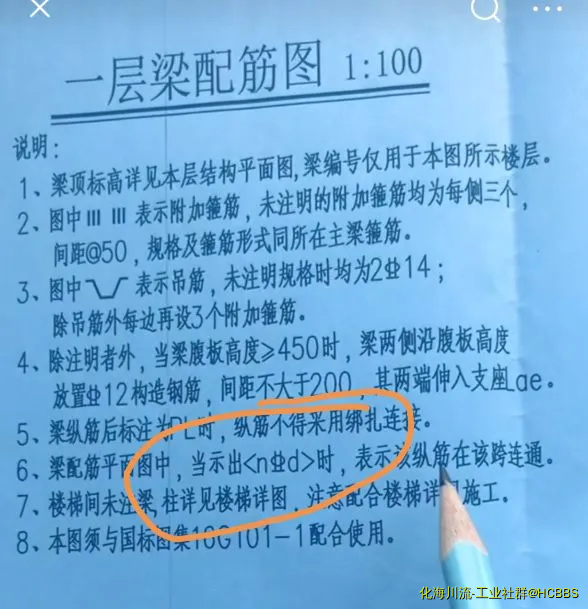 一层梁配筋图 1:100
说明：
1、梁顶标高详见本层结构平面图,梁编号仅用于本图所示楼层。
2、图中 表示附加箍筋，未注明的附加箍筋均为每侧三个，
间距@50，规格及箍筋形式同所在主梁箍筋。
3、图中 表示吊筋，未注明规格时均为2⏀14；
除吊筋外每边再设3个附加箍筋。
4、除注明者外，当梁腹板高度≥450时，梁两侧沿腹板高度
放置⏀12构造钢筋，间距不大于200，其两端伸入支座Lae。
5、梁纵筋后标注为PL时，纵筋不得采用绑扎连接。
6、梁配筋平面图中，当示出<n⏀d>时，表示该纵筋在该跨连通。
7、楼梯间未注梁,柱详见楼梯详图，注意配合楼梯详 施工。
8、本图须与国标图集16G101-1配合使用。
化海川流-工业社群@HCBBS